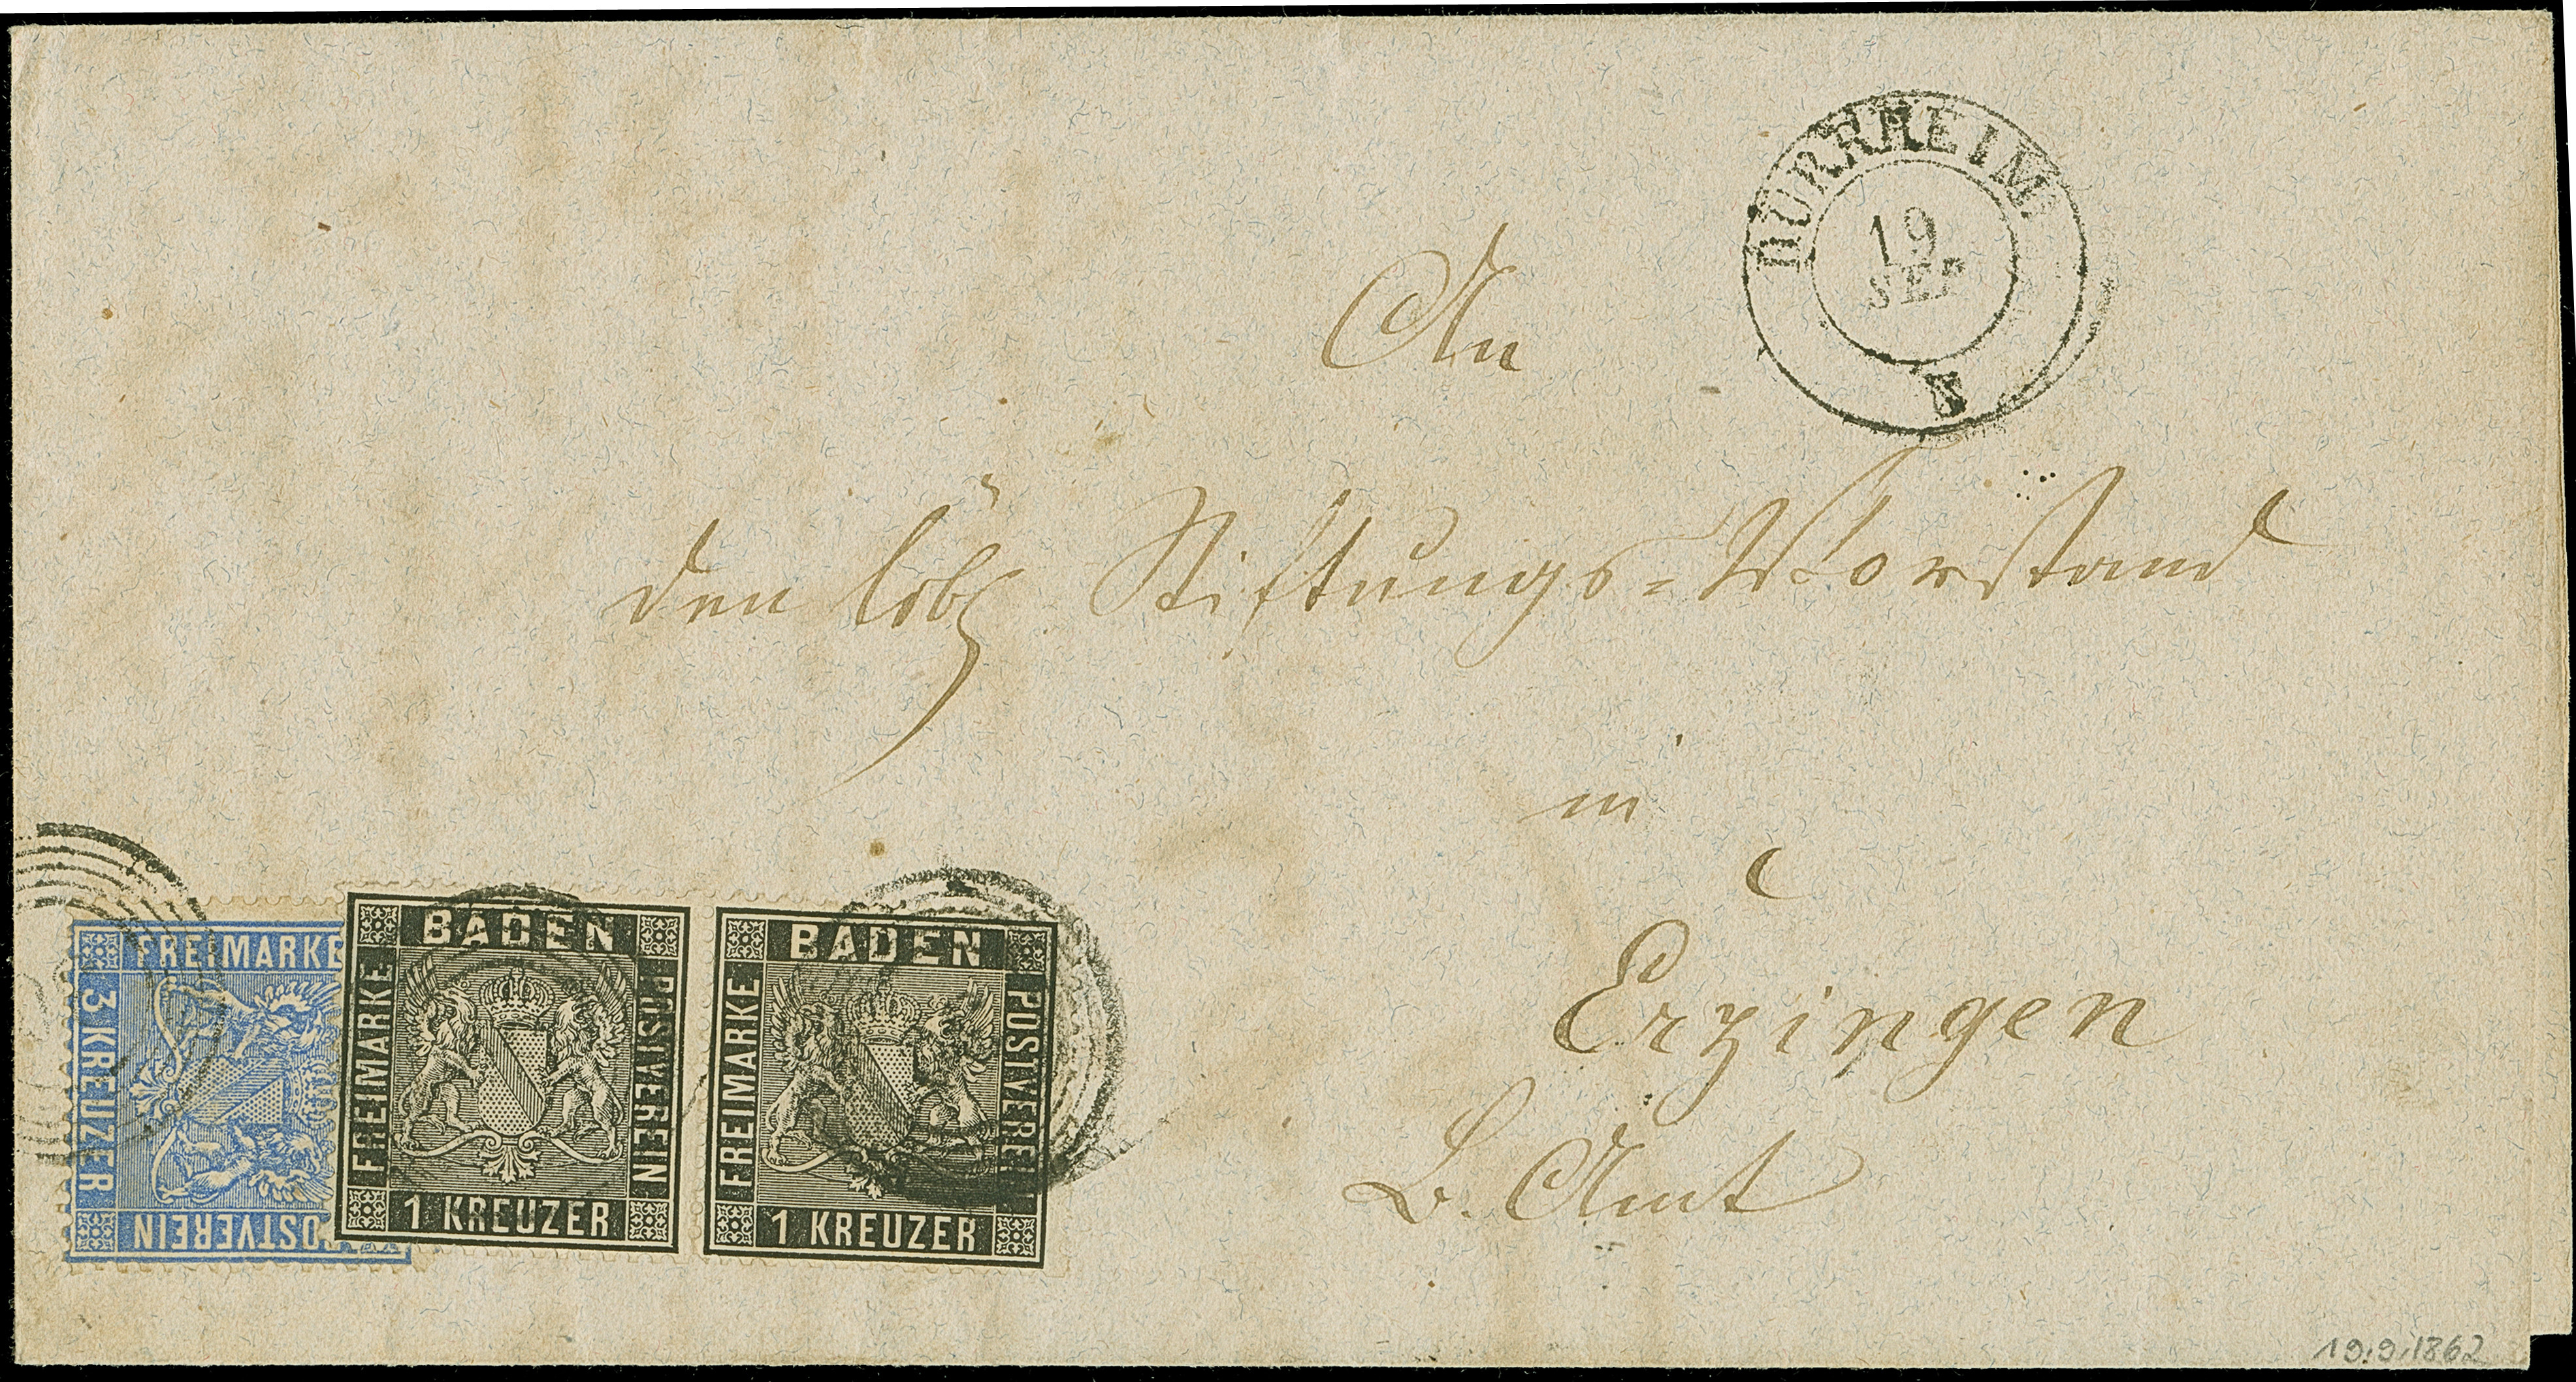 DÜRRHEIM
19
SEP
An
den löbl. Stiftungs=Vorstand
in
Erzingen
B. Amt
FREIMARKE
3 KREUZER
POSTVEREIN
BADEN
FREIMARKE
POSTVEREIN
1 KREUZER
BADEN
FREIMARKE
POSTVEREIN
1 KREUZER
19.9.1862